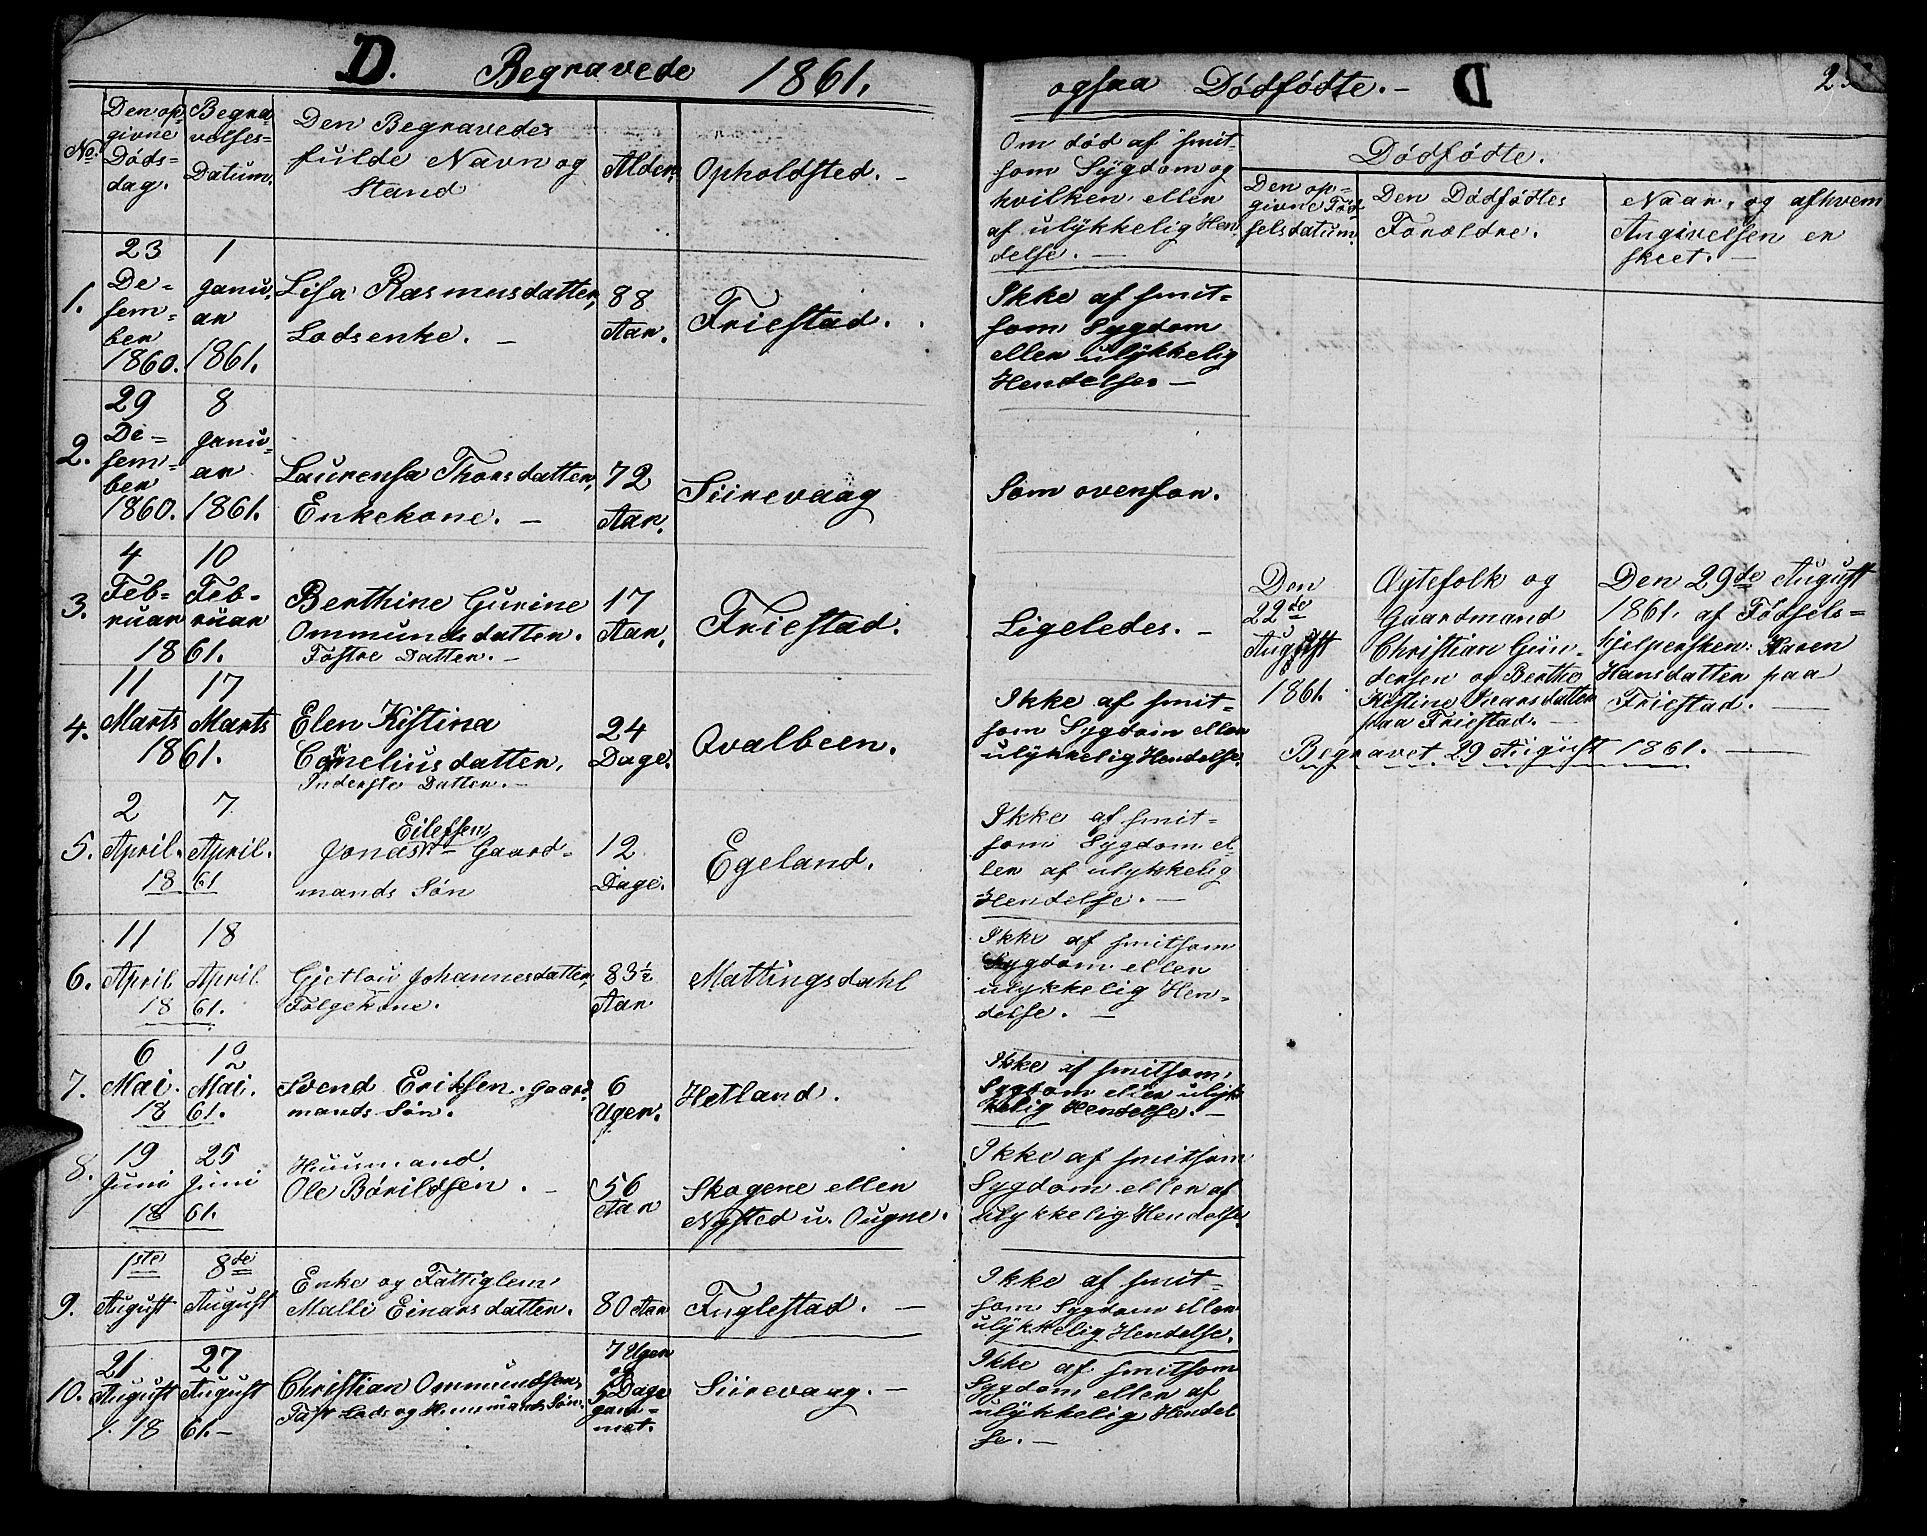 D. Begravede 1861. ogsaa Dødfødte. – D
No. Den op-
givne
Døds-
dag. Begra-
velses-
Datum. Den Begravedes
fulde Navn og
Stand Alder. Opholdsted. –
Om død af smit-
som Sygdom og
hvilken eller
af ulykkelig Hen-
delse. –
Dødfødte.
Den op-
givne Fød-
selsdatum. Den Dødfødtes
Forældre. Naar, og afhvem
Angivelsen er
skeet. –
1. 23
De-
sem-
ber
1860. 1
Janu-
ar
1861. Lisa Rasmusdatter,
Lodsenke. – 88
Aar. Friestad.
Ikke af smit-
som Sygdom
eller ulykkelig
Hendelse –
2. 29
De-
sem-
ber
1860. 8
Janu-
ar
1861. Laurensa Thorsdatter,
Enkekone. – 72
Aar. Siirevaag
Som ovenfor.
3. 4
Feb-
ruar 10
Feb-
ruar
1861. Berthine Gurine
Ommundsdatter.
Fostre Datter. – 17
Aar. Friestad.
Ligeledes. –
Den
22de
August
1861. Øytefolk og
Gaardmand
Christian Gun-
dersen og Berthe
Kistine Ivarsdatter
paa Friestad. –
Den 29de August
1861. af Fødsels-
hjelpersken: Karen
Hansdatter paa
Friestad. –
Begravet 29 August 1861. –
4. 11
Marts 17
Marts
1861. Elen Kistina
Corneliusdatter,
Inderste Datter. – 24
Dage. Qvalbeen.
Ikke af smit-
som Sygdom eller
ulykkelig Hendelse.
5. 2
April. 7
April.
1861 Eilefsen
Jonas – Gaard-
mands Søn 12
Dage. Egeland.
Ikke af smit-
som Sygdom el-
ler af ulykkelig
Hendelse. –
6. 11
April 18
April
1861. Gjetlou Johannesdatter,
Følgekone. 83½
Aar Mattingsdahl
Ikke af smitsom
Sygdom eller
ulykkelig Hen-
delse. –
7. 6
Mai. 12
Mai.
1861. Svend Eriksen. gaard-
mands Søn. 6
Uger. Hetland.
Ikke af smitsom
Sygdom eller ulyk-
kelig Hendelse. –
8. 19
Juni 25
Juni
1861. Huusmand.
Ole Børildsen. – 56
Aar Skogene eller
Nysted u. Ougne.
Ikke af smitsom
Sygdom eller af
ulykkelig Hendelse
9. 1ste
August 8de
August Enke og Fattiglem
Malli Einarsdatter. 80 Aar Fuglestad. –
Ikke af smit-
som Sygdom eller
ulykkelig Hendelse.
10. 21
August 27
August
1861. – Christian Ommundsen,
Lods og Huusmands Søn. 7 Uger
og
5 Dage
gam-
mel. Siirevaag. –
Ikke af smitsom
Sygdom eller af
ulykkelig Hendel
se. –